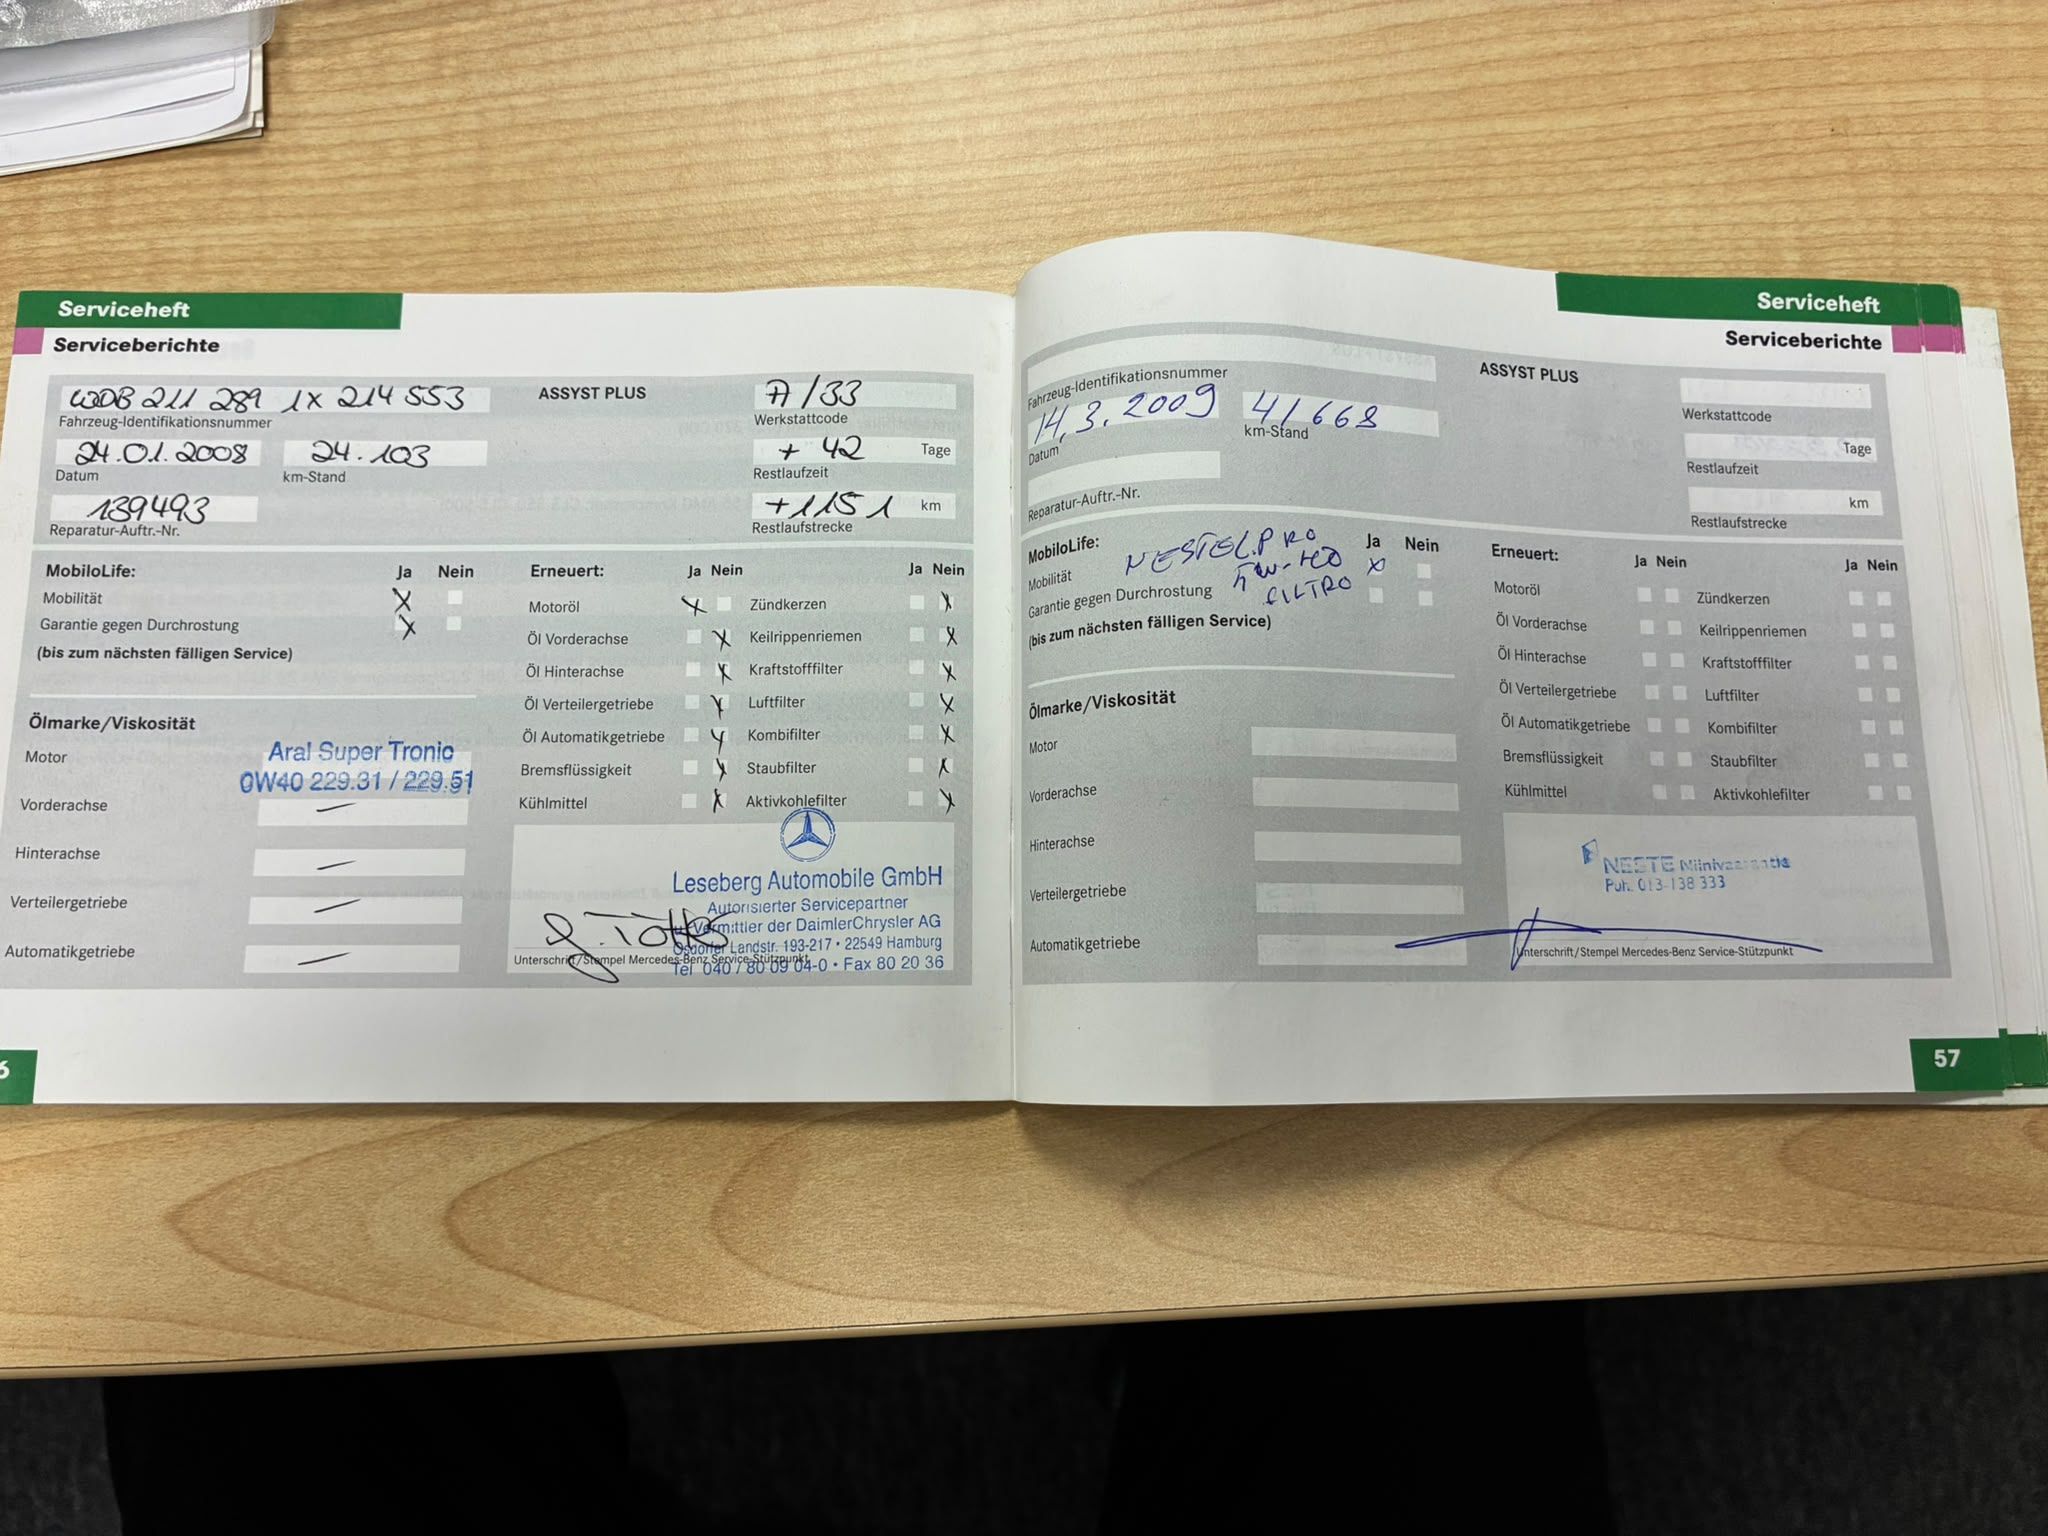 Serviceheft
Serviceberichte
WDB 211 289 1X 214 553
Fahrzeug-Identifikationsnummer
24.01.2008 24.103
Datum km-Stand
139493
Reparatur-Auftr.-Nr.
ASSYST PLUS
A/33
Werkstattcode
+ 42 Tage
Restlaufzeit
+1151 km
Restlaufstrecke
MobiloLife: Ja Nein
Mobilität X
Garantie gegen Durchrostung X
(bis zum nächsten fälligen Service)
Ölmarke/Viskosität
Motor Aral Super Tronic
0W40 229.31 / 229.51
Vorderachse —
Hinterachse —
Verteilergetriebe —
Automatikgetriebe —
Erneuert: Ja Nein Ja Nein
Motoröl X Zündkerzen X
Öl Vorderachse X Keilrippenriemen X
Öl Hinterachse X Kraftstofffilter X
Öl Verteilergetriebe X Luftfilter X
Öl Automatikgetriebe X Kombifilter X
Bremsflüssigkeit X Staubfilter X
Kühlmittel X Aktivkohlefilter X
Leseberg Automobile GmbH
Autorisierter Servicepartner
u. Vermittler der DaimlerChrysler AG
Osdorfer Landstr. 193-217 • 22549 Hamburg
Unterschrift/Stempel Mercedes-Benz Service-Stützpunkt
Tel 040 / 80 09 04-0 • Fax 80 20 36
6
Serviceheft
Serviceberichte
Fahrzeug-Identifikationsnummer
14.3.2009 41668
Datum km-Stand
Reparatur-Auftr.-Nr.
ASSYST PLUS
Werkstattcode
Tage
Restlaufzeit
km
Restlaufstrecke
MobiloLife: Ja Nein
Mobilität X
Garantie gegen Durchrostung
(bis zum nächsten fälligen Service)
PRO
FILTRO
Ölmarke/Viskosität
Motor
Vorderachse
Hinterachse
Verteilergetriebe
Automatikgetriebe
Erneuert: Ja Nein Ja Nein
Motoröl Zündkerzen
Öl Vorderachse Keilrippenriemen
Öl Hinterachse Kraftstofffilter
Öl Verteilergetriebe Luftfilter
Öl Automatikgetriebe Kombifilter
Bremsflüssigkeit Staubfilter
Kühlmittel Aktivkohlefilter
NESTE
Puh. 013-138 333
Unterschrift/Stempel Mercedes-Benz Service-Stützpunkt
57